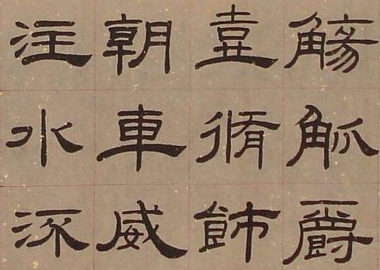 觴觚爵
壺脩飾
朝車威
注水流